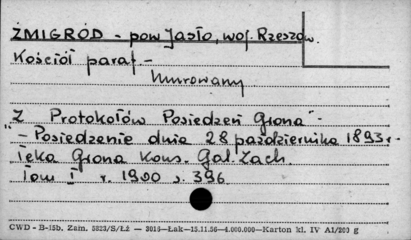 ŻMIGRÓD - pow Jasło, woj. Rzeszów.
Kościół paraf. -
Murowany
Z Protokołów Posiedzeń Grona -
"- Posiedzenie dnia 28 października 1893 r.
Teka Grona Kons. Gal. Zach.
Tom I r. 1900 s. 396
CWD - B-15b. Zam. 5823/S/Łż - 3019-Łak-15.11.56-4.000.000-Karton kl. IV A1/200 g